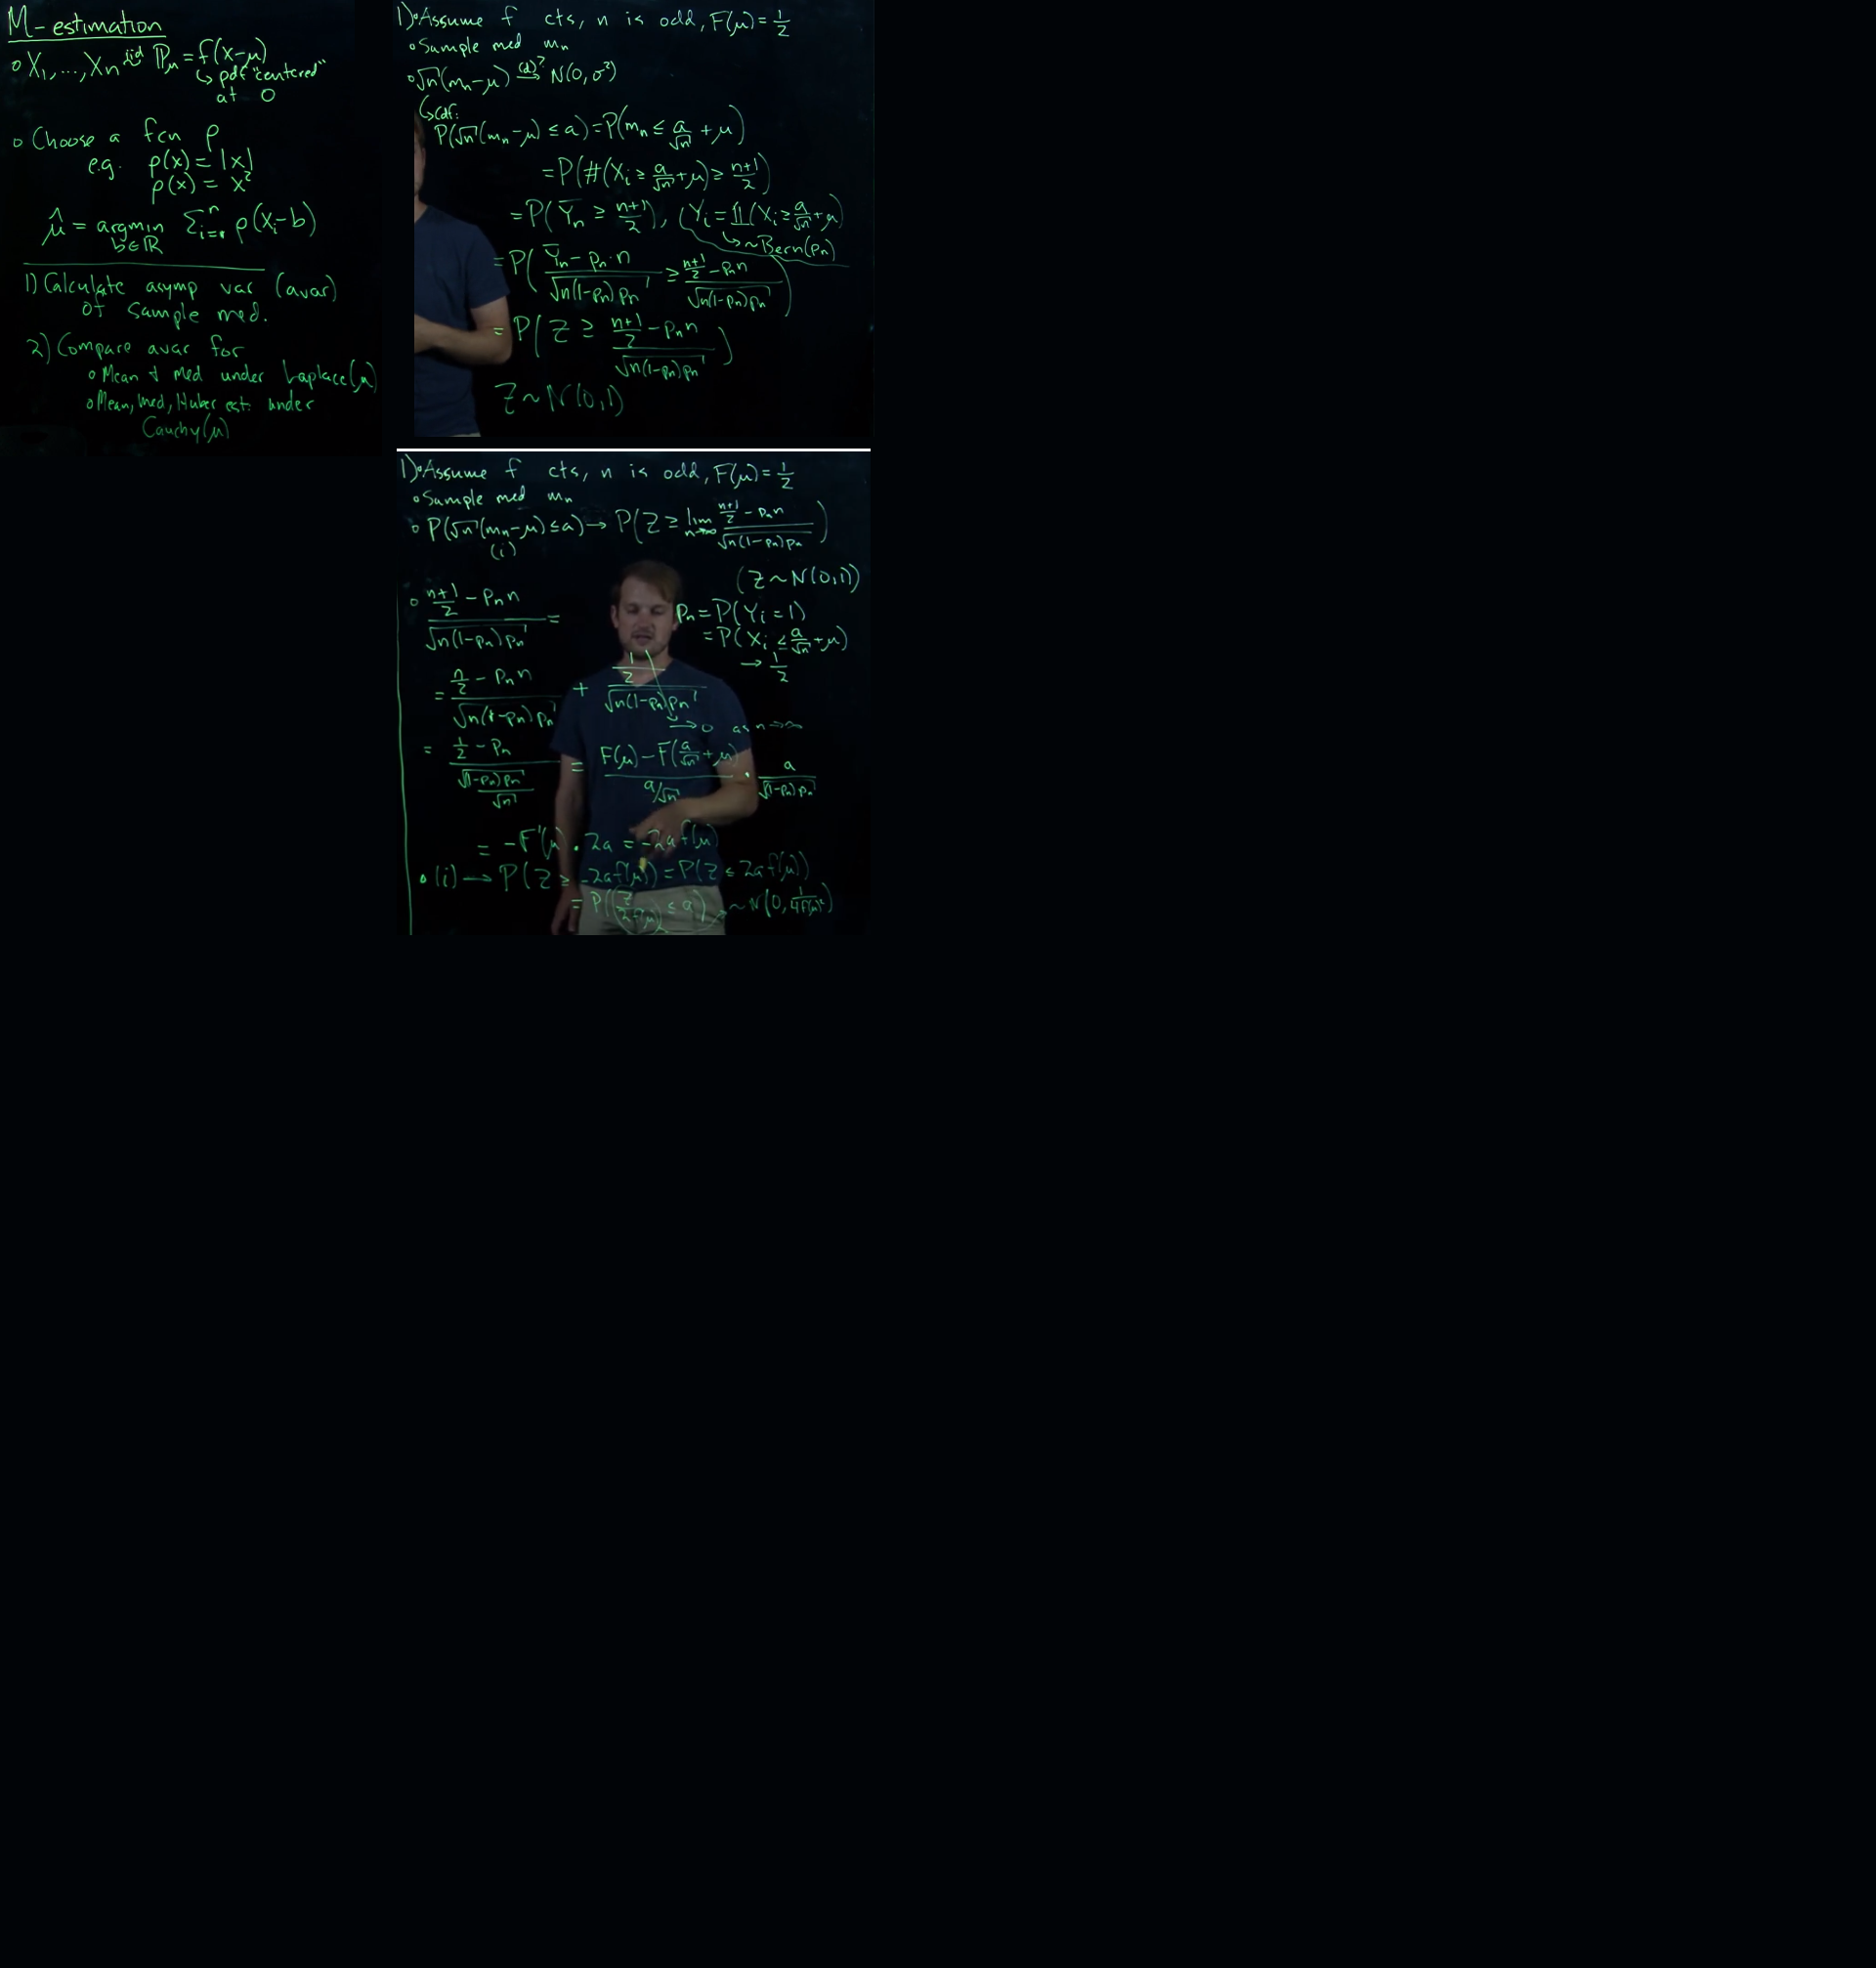 M-estimation
∘ X₁,...,Xₙ iid~ ℙ_μ = f(x-μ)
↳ pdf "centered"
at 0
∘ Choose a fcn ρ
e.g. ρ(x) = |x|
ρ(x) = x²
μ̂ = argmin Σᵢ₌₁ⁿ ρ(Xᵢ-b)
b∈ℝ
1) Calculate asymp var (avar)
of sample med.
2) Compare avar for
∘ Mean & med under Laplace(μ)
∘ Mean, med, Huber est. under
Cauchy(μ)
1) ∘ Assume f cts, n is odd, F(μ) = 1/2
∘ Sample med mₙ
∘ √n(mₙ-μ) (d)?→ N(0,σ²)
↳ cdf:
P(√n(mₙ-μ) ≤ a) = P(mₙ ≤ a/√n + μ)
= P(#(Xᵢ ≥ a/√n + μ) ≥ (n+1)/2)
= P(Ȳₙ ≥ (n+1)/2), (Yᵢ = 𝟙(Xᵢ ≥ a/√n + μ)
↳ ~ Bern(pₙ)
= P( (Ȳₙ - pₙ·n)/√(n(1-pₙ)pₙ) ≥ ((n+1)/2 - pₙn)/√(n(1-pₙ)pₙ) )
= P( Z ≥ ((n+1)/2 - pₙn)/√(n(1-pₙ)pₙ) )
Z ~ N(0,1)
1) ∘ Assume f cts, n is odd, F(μ) = 1/2
∘ Sample med mₙ
∘ P(√n(mₙ-μ) ≤ a) → P(Z ≥ lim n→∞ ((n+1)/2 - pₙn)/√(n(1-pₙ)pₙ) )
(i)
(Z ~ N(0,1))
∘ ((n+1)/2 - pₙn)/√(n(1-pₙ)pₙ) =
pₙ = P(Yᵢ = 1)
= P(Xᵢ ≤ a/√n + μ)
→ 1/2
= (n/2 - pₙn)/√(n(1-pₙ)pₙ) + (1/2)/√(n(1-pₙ)pₙ)
→ 0 as n→∞
= (1/2 - pₙ)/(√((1-pₙ)pₙ)/√n) = (F(μ) - F(a/√n + μ))/(a/√n) · a/√((1-pₙ)pₙ)
= -F'(μ) · 2a = -2af(μ)
∘ (i) → P(Z ≥ -2af(μ)) = P(Z ≤ 2af(μ))
= P(Z/2f(μ) ≤ a) ~ N(0, 1/4f(μ)²)